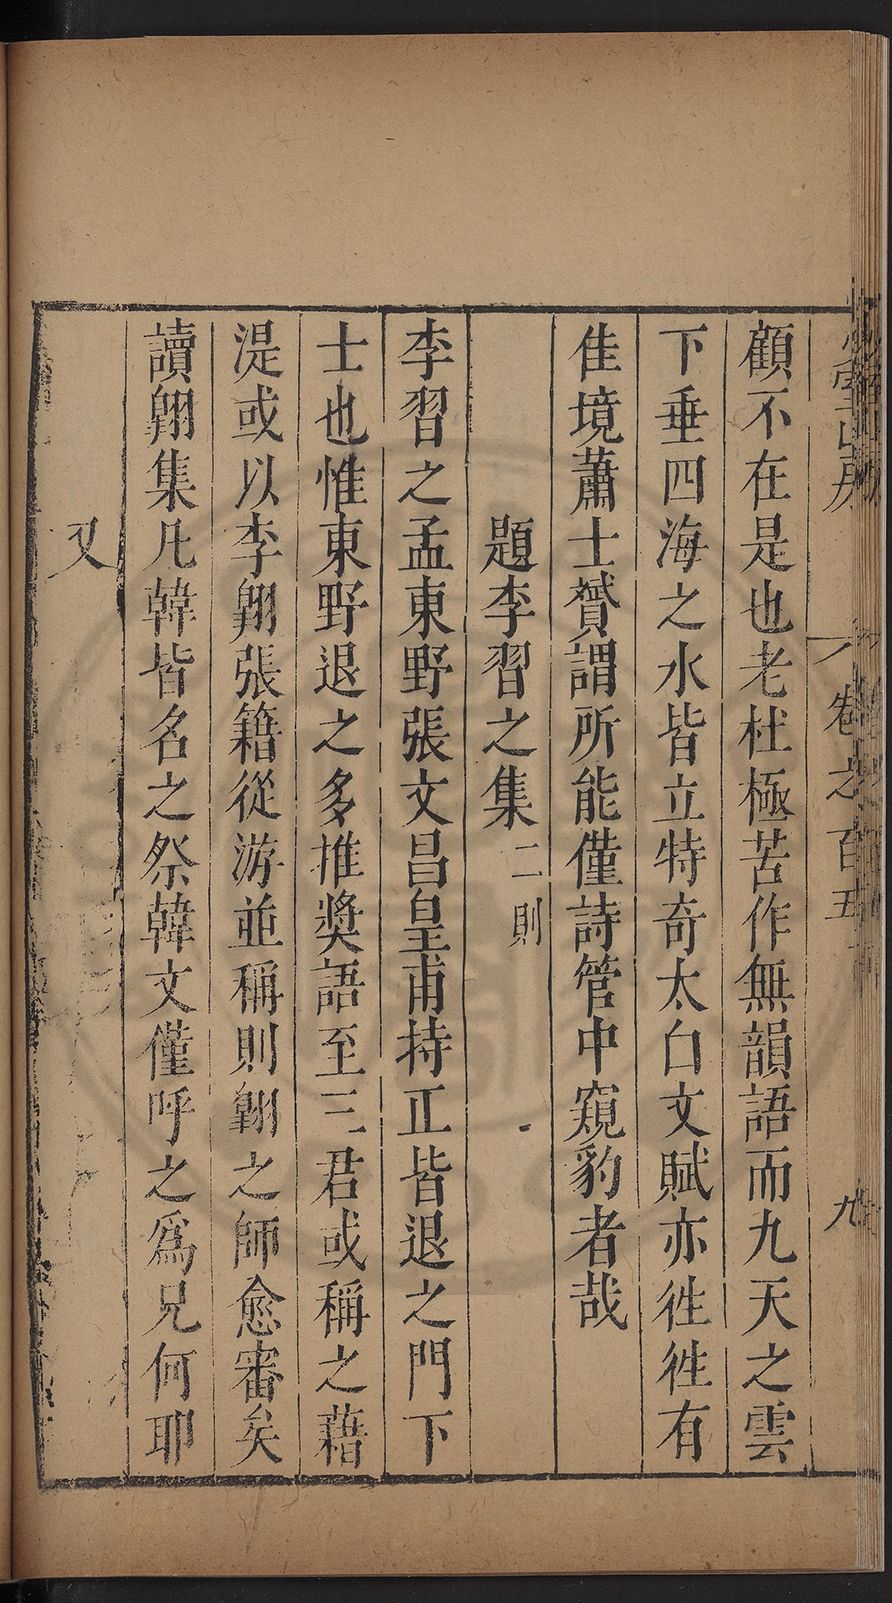 顧不在是也老杜極苦作無韻語而九天之雲
下垂四海之水皆立特奇太白文賦亦徃徃有
佳境蕭士贇謂所能僅詩管中窺豹者哉
題李習之集二則
李習之孟東野張文昌皇甫持正皆退之門下
士也惟東野退之多推奬語至三君或稱之藉
湜或以李翺張籍從游並稱則翺之師愈審矣
讀翺集凡韓皆名之祭韓文僅呼之爲兄何耶
又
卷之百五
九